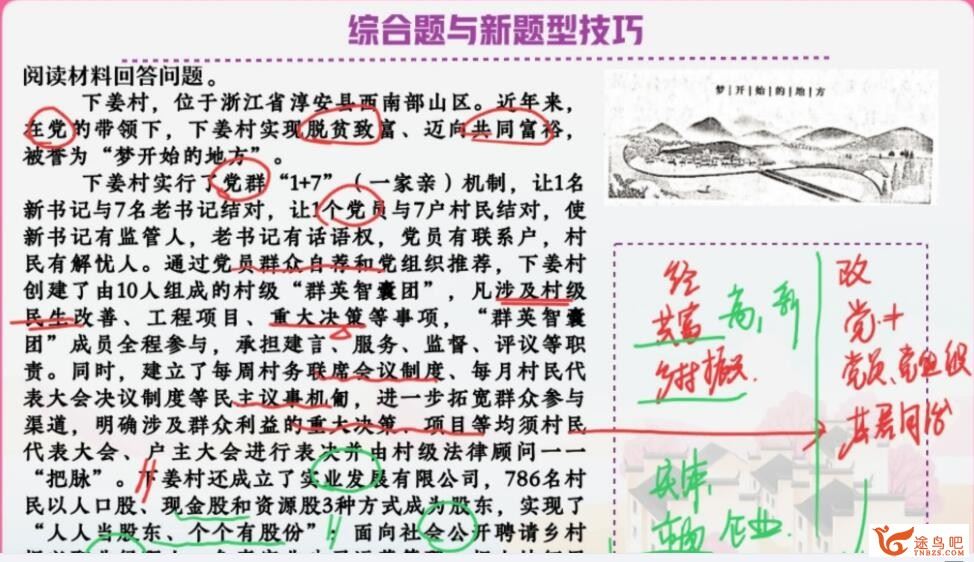 综合题与新题型技巧
阅读材料回答问题。
下姜村，位于浙江省淳安县西南部山区。近年来，
在党的带领下，下姜村实现脱贫致富、迈向共同富裕，
被誉为“梦开始的地方”。
下姜村实行了党群“1+7”（一家亲）机制，让1名
新书记与7名老书记结对，让1个党员与7户村民结对，使
新书记有监管人，老书记有话语权，党员有联系户，村
民有解忧人。通过党员群众自荐和党组织推荐，下姜村
创建了由10人组成的村级“群英智囊团”，凡涉及村级
民生改善、工程项目、重大决策等事项，“群英智囊
团”成员全程参与，承担建言、服务、监督、评议等职
责。同时，建立了每周村务联席会议制度、每月村民代
表大会决议制度等民主议事机制，进一步拓宽群众参与
渠道，明确涉及群众利益的重大决策、项目等均须村民
代表大会、户主大会进行表决并由村级法律顾问一一
“把脉”。下姜村还成立了实业发展有限公司，786名村
民以人口股、现金股和资源股3种方式成为股东，实现了
“人人当股东、个个有股份”；面向社会公开聘请乡村
梦开始的地方
经
共富
高、新
乡村振兴.
政
党+
党员、党组织
基层
实体
企业
途鸟吧
TNBZS.COM